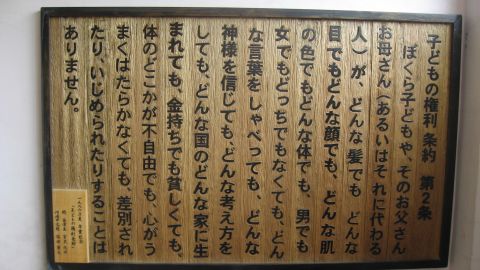 子どもの権利 条約 第2条
ぼくら子どもや、そのお父さん
お母さん(あるいはそれに代わる
人)が、どんな髪でも どんな
目でもどんな顔でも、どんな肌
の色でもどんな体でも、男でも
女でもどっちでもなくても、どん
な言葉をしゃべっても、どんな
神様を信じても、どんな考え方を
しても、どんな国のどんな家に生
まれても、金持ちでも貧しくても、
体のどこかが不自由でも、心がう
まくはたらかなくても、差別され
たり、いじめられたりすることは
ありません。